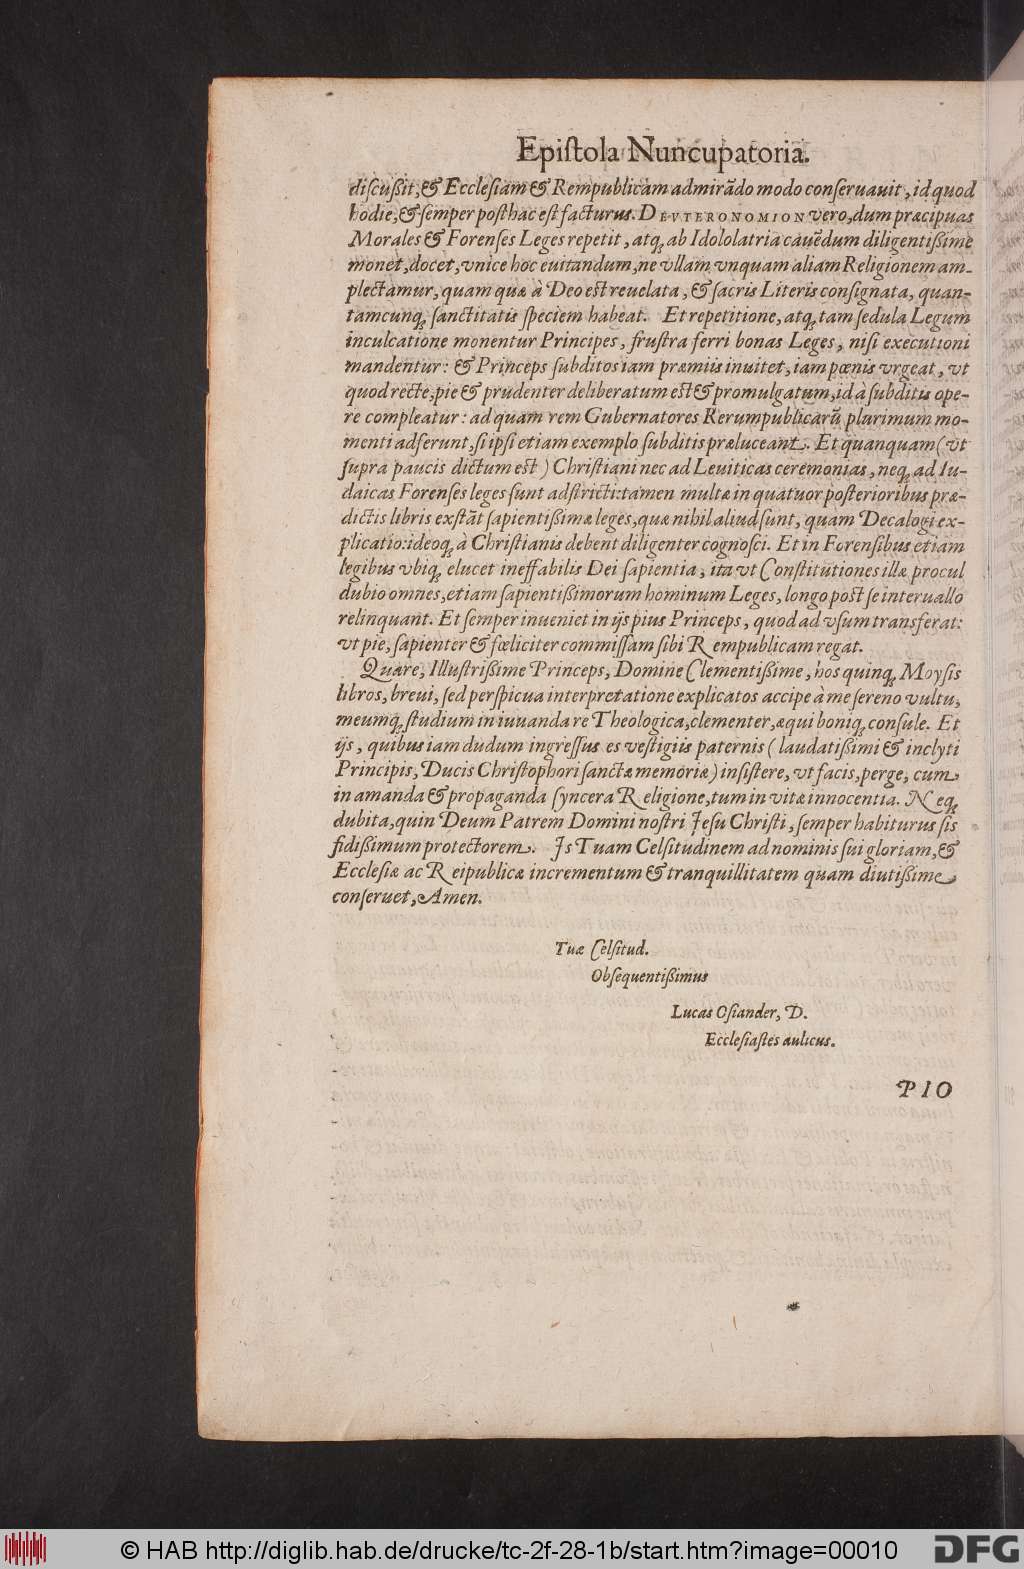 Epiſtola Nuncupatoria.
diſcußit, & Eccleſiam & Rempublicam admirãdo modo conſeruauit, id quod
hodie, & ſemper poſthac eſt facturus. DEVTERONOMION vero, dum præcipuas
Morales & Forenſes Leges repetit, atq́; ab Idololatria cauẽdum diligentißime
monet, docet, vnice hoc euitandum, ne vllam vnquam aliam Religionem am-
plectamur, quam quæ à Deo eſt reuelata, & ſacris Literis conſignata, quan-
tamcunq́; ſanctitatis ſpeciem habeat. Et repetitione, atq́; tam ſedula Legum
inculcatione monentur Principes, fruſtra ferri bonas Leges, niſi executioni
mandentur: & Princeps ſubditos iam præmiis inuitet, iam pœnis vrgeat, vt
quod recte, pie & prudenter deliberatum eſt & promulgatum, id à ſubditis ope-
re compleatur: ad quam rem Gubernatores Rerumpublicarũ plurimum mo-
menti adferunt, ſi ipſi etiam exemplo ſubditis præluceant. Et quanquam (vt
ſupra paucis dictum eſt) Chriſtiani nec ad Leuiticas ceremonias, neq́; ad Iu-
daicas Forenſes leges ſunt adſtricti: tamen multæ in quatuor poſterioribus præ-
dictis libris exſtãt ſapientißimæ leges, quæ nihil aliud ſunt, quam Decalogi ex-
plicatio: ideoq́; à Chriſtianis debent diligenter cognoſci. Et in Forenſibus etiam
legibus vbiq́; elucet ineffabilis Dei ſapientia, ita vt Conſtitutiones illæ procul
dubio omnes, etiam ſapientißimorum hominum Leges, longo poſt ſe interuallo
relinquant. Et ſemper inueniet in ijs pius Princeps, quod ad vſum transferat:
vt pie, ſapienter & fœliciter commiſſam ſibi Rempublicam regat.
Quare, Illuſtrißime Princeps, Domine Clementißime, hos quinq́; Moyſis
libros, breui, ſed perſpicua interpretatione explicatos accipe à me ſereno vultu,
meumq́; ſtudium in iuuanda re Theologica, clementer, æqui boniq́; conſule. Et
ijs, quibus iam dudum ingreſſus es veſtigiis paternis (laudatißimi & inclyti
Principis, Ducis Chriſtophori ſanctæ memoriæ) inſiſtere, vt facis, perge, cum
in amanda & propaganda ſyncera Religione, tum in vitæ innocentia. Neq́;
dubita, quin Deum Patrem Domini noſtri Jeſu Chriſti, ſemper habiturus ſis
fidißimum protectorem. Js Tuam Celſitudinem ad nominis ſui gloriam, &
Eccleſiæ ac Reipublicæ incrementum & tranquillitatem quam diutißime
conſeruet, Amen.
Tuæ Celſitud.
Obſequentißimus
Lucas Oſiander, D.
Eccleſiaſtes aulicus.
PIO
© HAB http://diglib.hab.de/drucke/tc-2f-28-1b/start.htm?image=00010
DFG